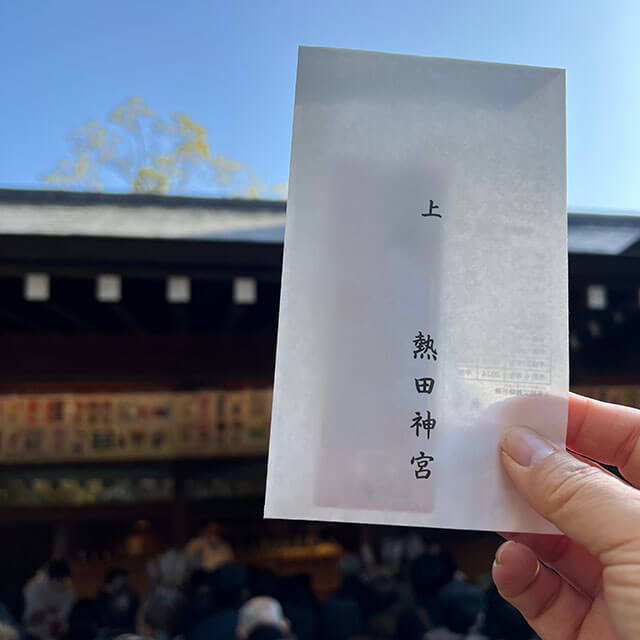 上
熱田神宮